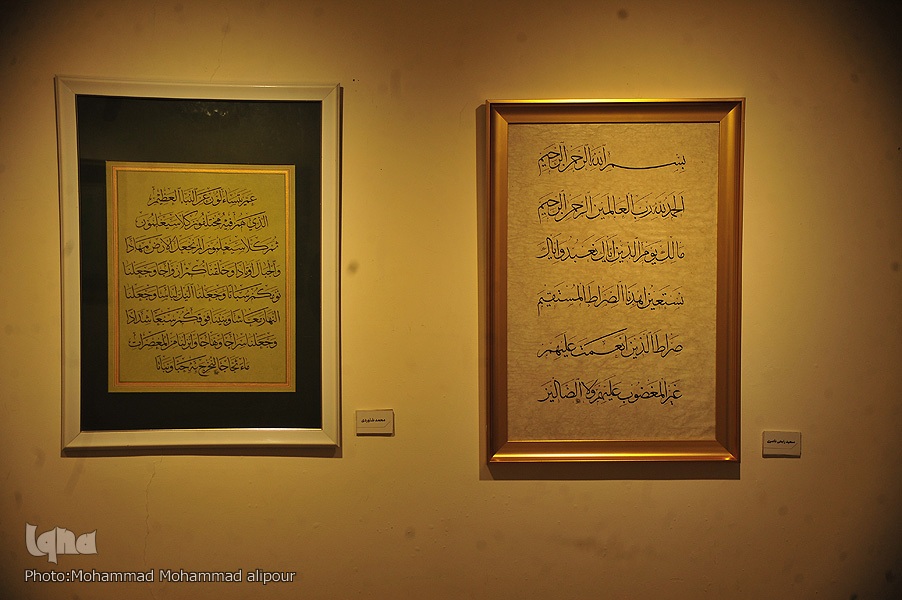 بسم الله الرحمن الرحيم
الحمد لله رب العالمين الرحمن الرحيم
مالك يوم الدين اياك نعبد واياك
نستعين اهدنا الصراط المستقيم
صراط الذين انعمت عليهم
غير المغضوب عليهم ولا الضالين
عم يتساءلون عن النبأ العظيم
الذي هم فيه مختلفون كلا سيعلمون
ثم كلا سيعلمون الم نجعل الارض مهادا
والجبال اوتادا وخلقناكم ازواجا وجعلنا
نومكم سباتا وجعلنا الليل لباسا وجعلنا
النهار معاشا وبنينا فوقكم سبعا شدادا
وجعلنا سراجا وهاجا وانزلنا من المعصرات
ماء ثجاجا لنخرج به حبا ونباتا
محمد
سعید
Iqna
Photo:Mohammad Mohammad alipour